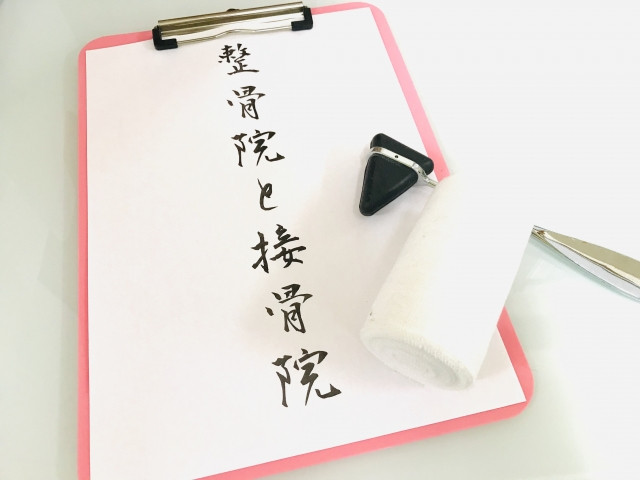 整骨院と接骨院